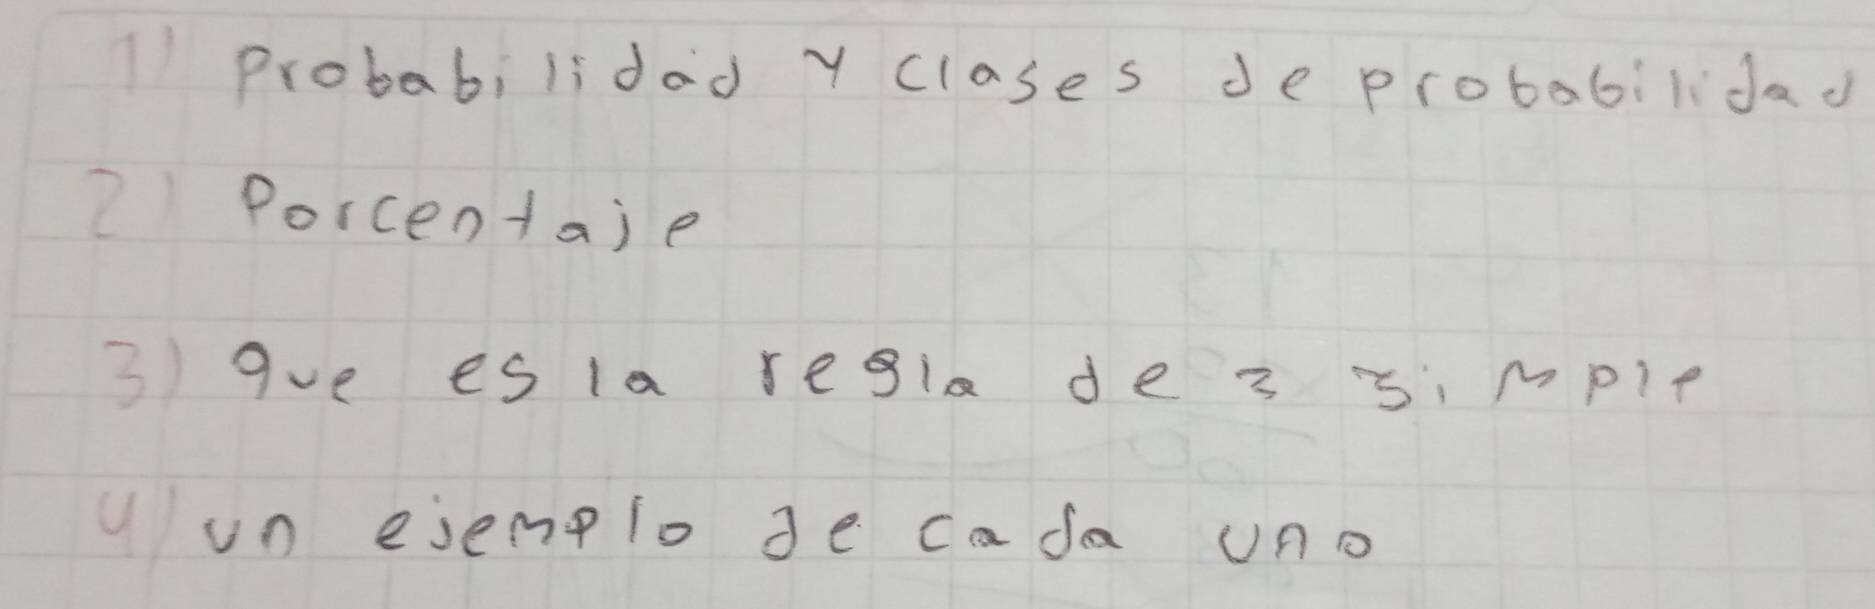 1) Probabilidad y clases de probabilidad
2) Porcentaje
3) que es la regla de 3 simple
4) un ejemplo de cada uno